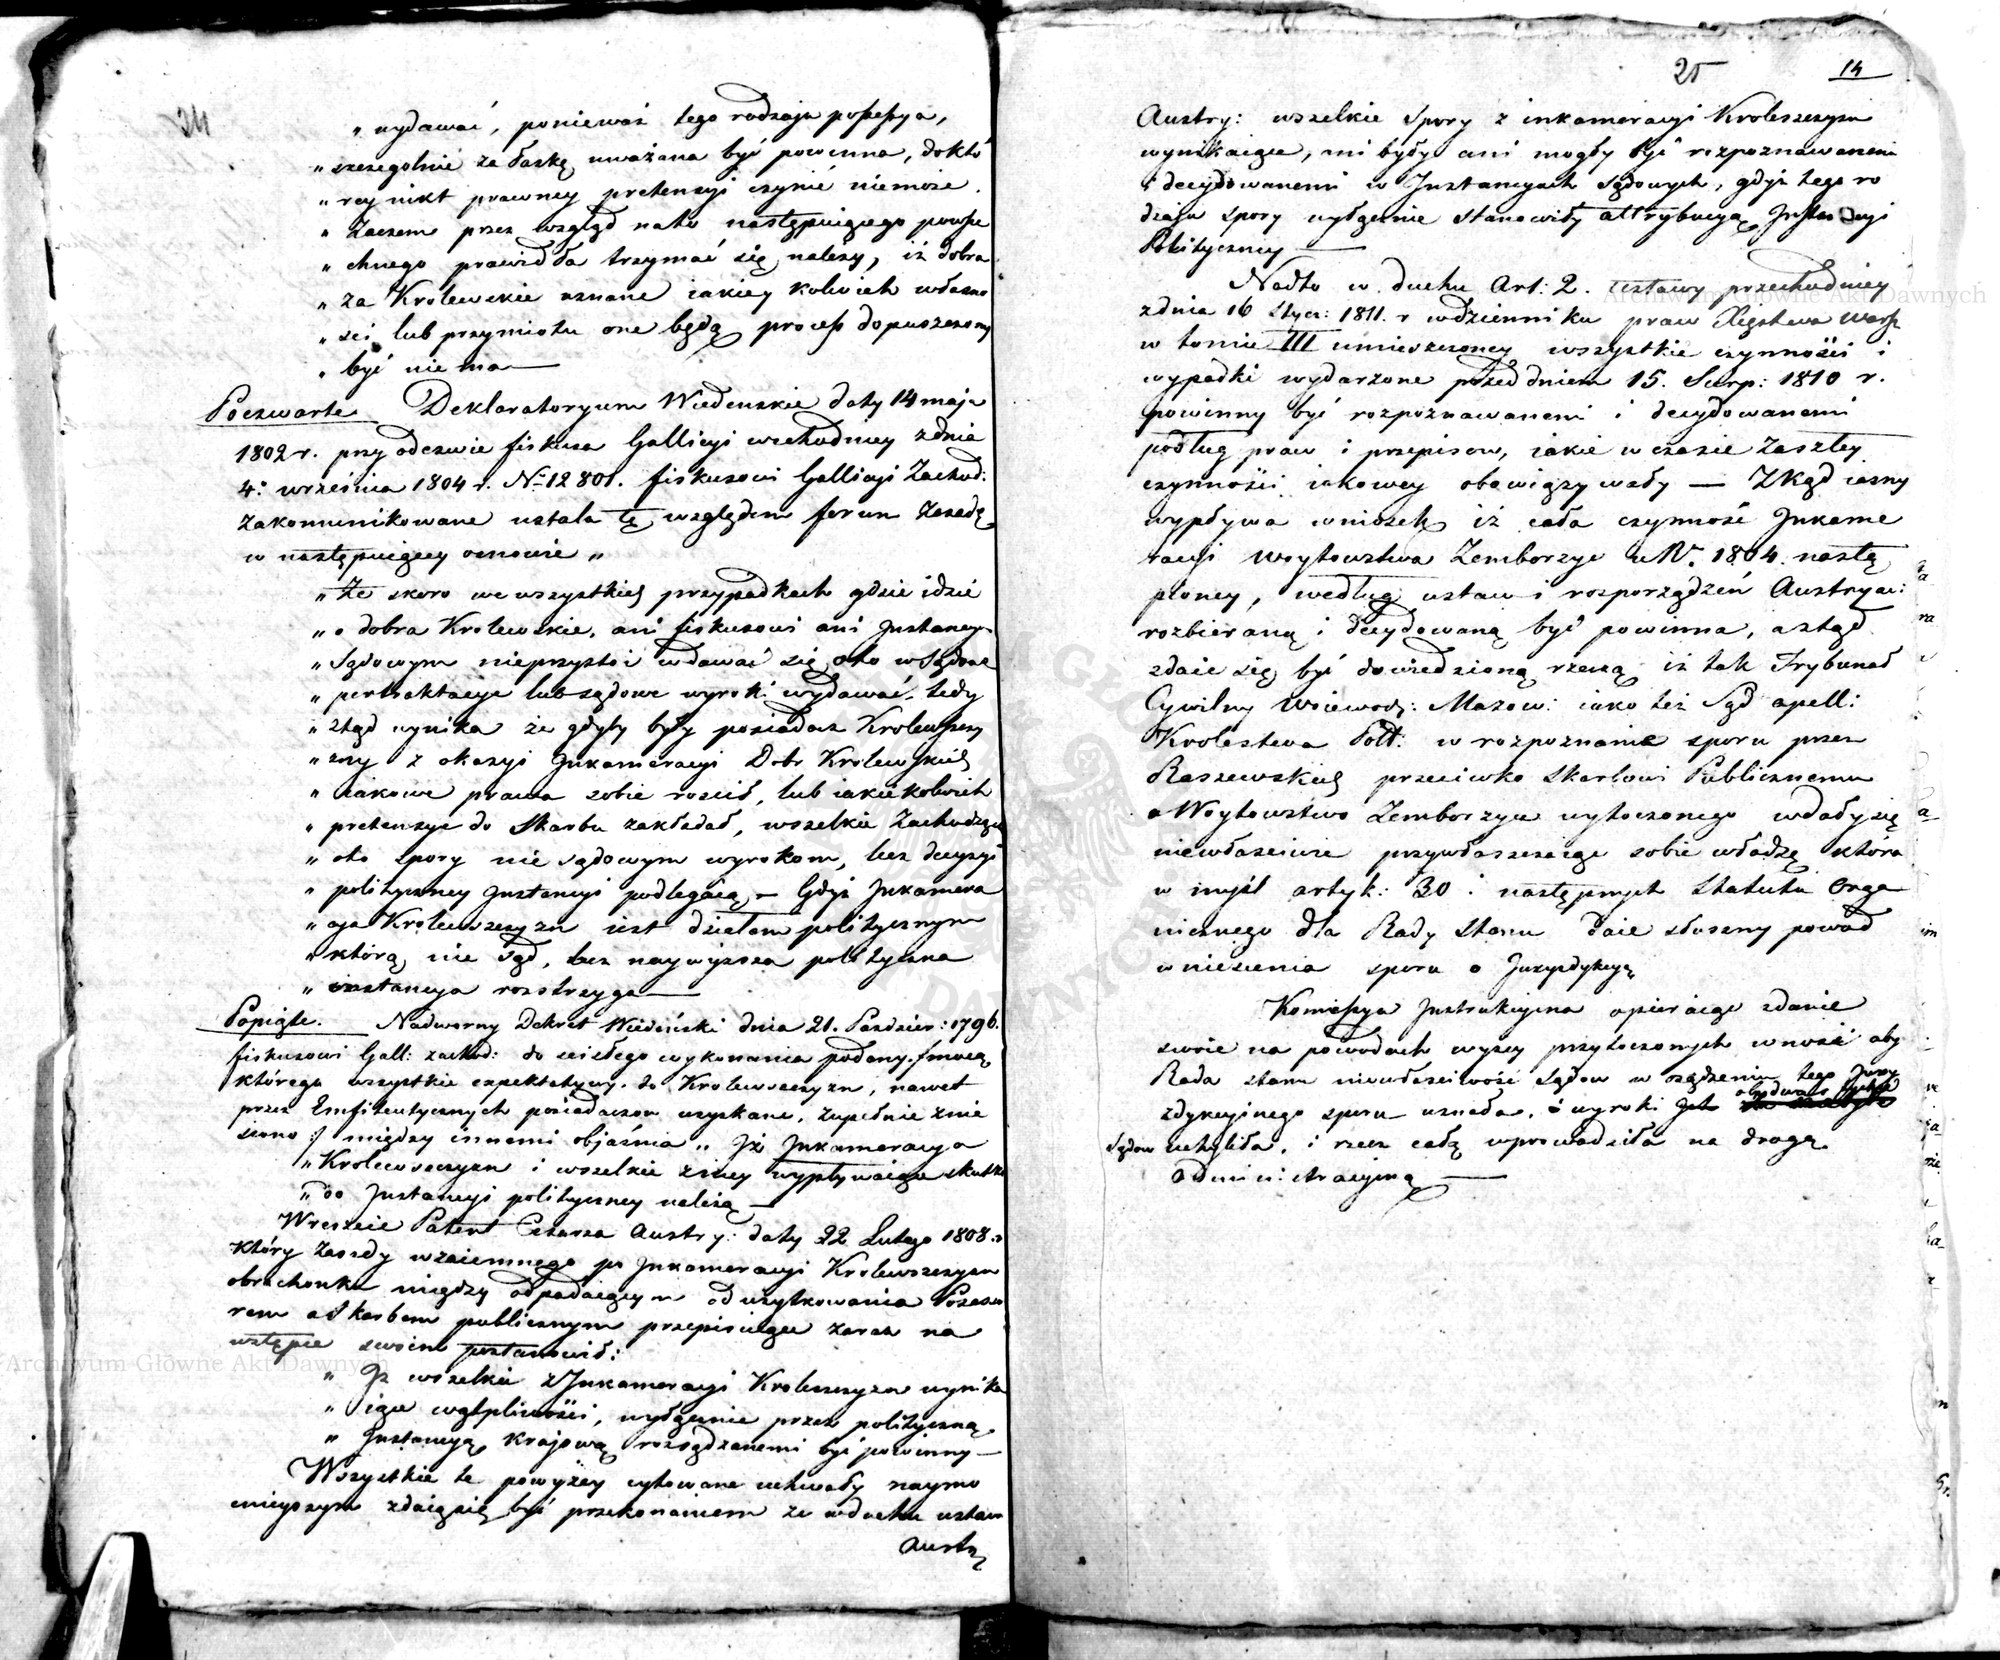 24
„ wydawać, ponieważ tego rodzaju possessya,
„ szczegolnie za łaskę uważana być powinna, do któ
„ rey nikt prawney pretensyi czynić niemoże.
„ Zaczem przez wzgląd na to następuiącego powsze
„ chnego prawidła trzymać się należy, iż dobra
„ za Krolewskie uznane iakiey kolwiek własno
„ ści lub przymiotu one będą, process dopuszczony
„ być nie ma —
Poczwarte Deklaratoryum Wiedenskie daty 14 maja
1802 r. przy odezwie fiskusa Gallicyi wschodniey z dnia
4. września 1804 r. No 12801. fiskusowi Gallicyi Zachod:
zakomunikowane ustala tę względem forum zasadę
w następuiącey osnowie „
„ Że skoro we wszystkich przypadkach gdzie idzie
„ o dobra Krolewskie, ani fiskusowi ani Instancy.
„ Sądowym nieprzystoi wdawać się oto w Sądowe
„ pertraktacye lub sądowe wyroki wydawać. tedy
„ ztąd wynika że gdyby były posiadacz Krolewszcz
„ zny z okazyi Inkameracyi Dobr Krolewskich
„ iakowe prawa sobie rościł, lub iakiekolwiek
„ pretensye do Skarbu zakładał, wszelkie Zachodzące
„ oto spory nie sądowym wyrokom, lecz decyzyi
„ polityczney Instancyi podlegaią — Gdyż Inkamera
„ cya Krolewszczyzn iest dziełem politycznym
„ którą nie Sąd, lecz naywyższa polityczna
„ instancya rozstrzyga —
Popiąte. Nadworny Dekret Wiedeński dnia 21. Pazdzier: 1796.
fiskusowi Gall: zachod: do scisłego wykonania podany, / mocą
którego wszystkie expektatywy do Krolewszczyzn, nawet
przez Emfiteutycznych posiadaczow uzyskane, zupełnie znie
siono :/ między innemi objaśnia „ Iż Inkameracya
„ Krolewszczyzn i wszelkie z niey wypływaiące skutki
„ do Instancyi polityczney należą —
Wreszcie Patent Cesarza Austry: daty 22 Lutego 1808. r
który Zasady wzaiemnego po Inkameracyi Krolewszczyzn
obrachunku między odpadaiącym od uzytkowania Possesso
rem a Skarbem publicznym przepisuiąc zaraz na
wstępie swoim postanowił:
„ Iz wszelkie z Inkameracyi Krolewszczyzn wynika
„ iące wątpliwości, wyłącznie przez polityczną
„ Instancyą Krajową rozsądzanemi być powinny —
Wszystkie te powyżey cytowane uchwały naymo
cnieyszym zdaią się być przekonaniem że w duchu ustaw
Austry
25
14
Austry: wszelkie spory z inkameracyi Kroleszczyzn
wynikaiące, ani były ani mogły być rozpoznawanemi
i decydowanemi w Instancyach Sądowych, gdyż tego ro
dzaju spory wyłącznie stanowiły attrybucyą Instancyi
Polityczney —
Nadto w duchu Art: 2. ustawy przechodniey
z dnia 16 Stycz: 1811. r w dzienniku praw Xięstwa Warsz
w tomie III umieszczoney wszystkie czynności i
wypadki wydarzone przed dniem 15. Sierp: 1810 r.
powinny być rozpoznawanemi i decydowanemi
podług praw i przepisow, iakie w czasie zaszłey
czynności iakowey obowiązywały — Zkąd iasny
wypływa wniosek iż cała czynność Inkame
racyi Woytowstwa Zemborzyc w R. 1804. nastą
pioney, według ustaw i rozporządzeń Austryac:
rozbieraną i decydowaną być powinna, a ztąd
zdaie się być dowiedzioną rzeczą iż tak Trybunał
Cywilny Woiewodz: Mazow: iako też Sąd apell:
Krolestwa Pols: w rozpoznanie sporu przez
Raszewskich przeciwko Skarbowi Publicznemu
o Woytowstwo Zemborzyce wytoczonego wdały się
niewłaściwie przywłaszczaiąc sobie władzę która
w myśl artyk: 30 i następnych Statutu Orga
nicznego dla Rady Stanu daie słuszny powod
wniesienia sporu o Juryzdykcyą
Kommissya Instrukcyina opieraiąc zdanie
swoie na powodach wyżey przytoczonych wnosi aby
Rada Stanu niewłaściwość Sądow w osądzeniu tego Jury
zdykcyinego sporu uznała, i wyroki obydwoch tychże
Sądow uchyliła, i rzecz całą wprowadziła na drogę
Administracyiną —